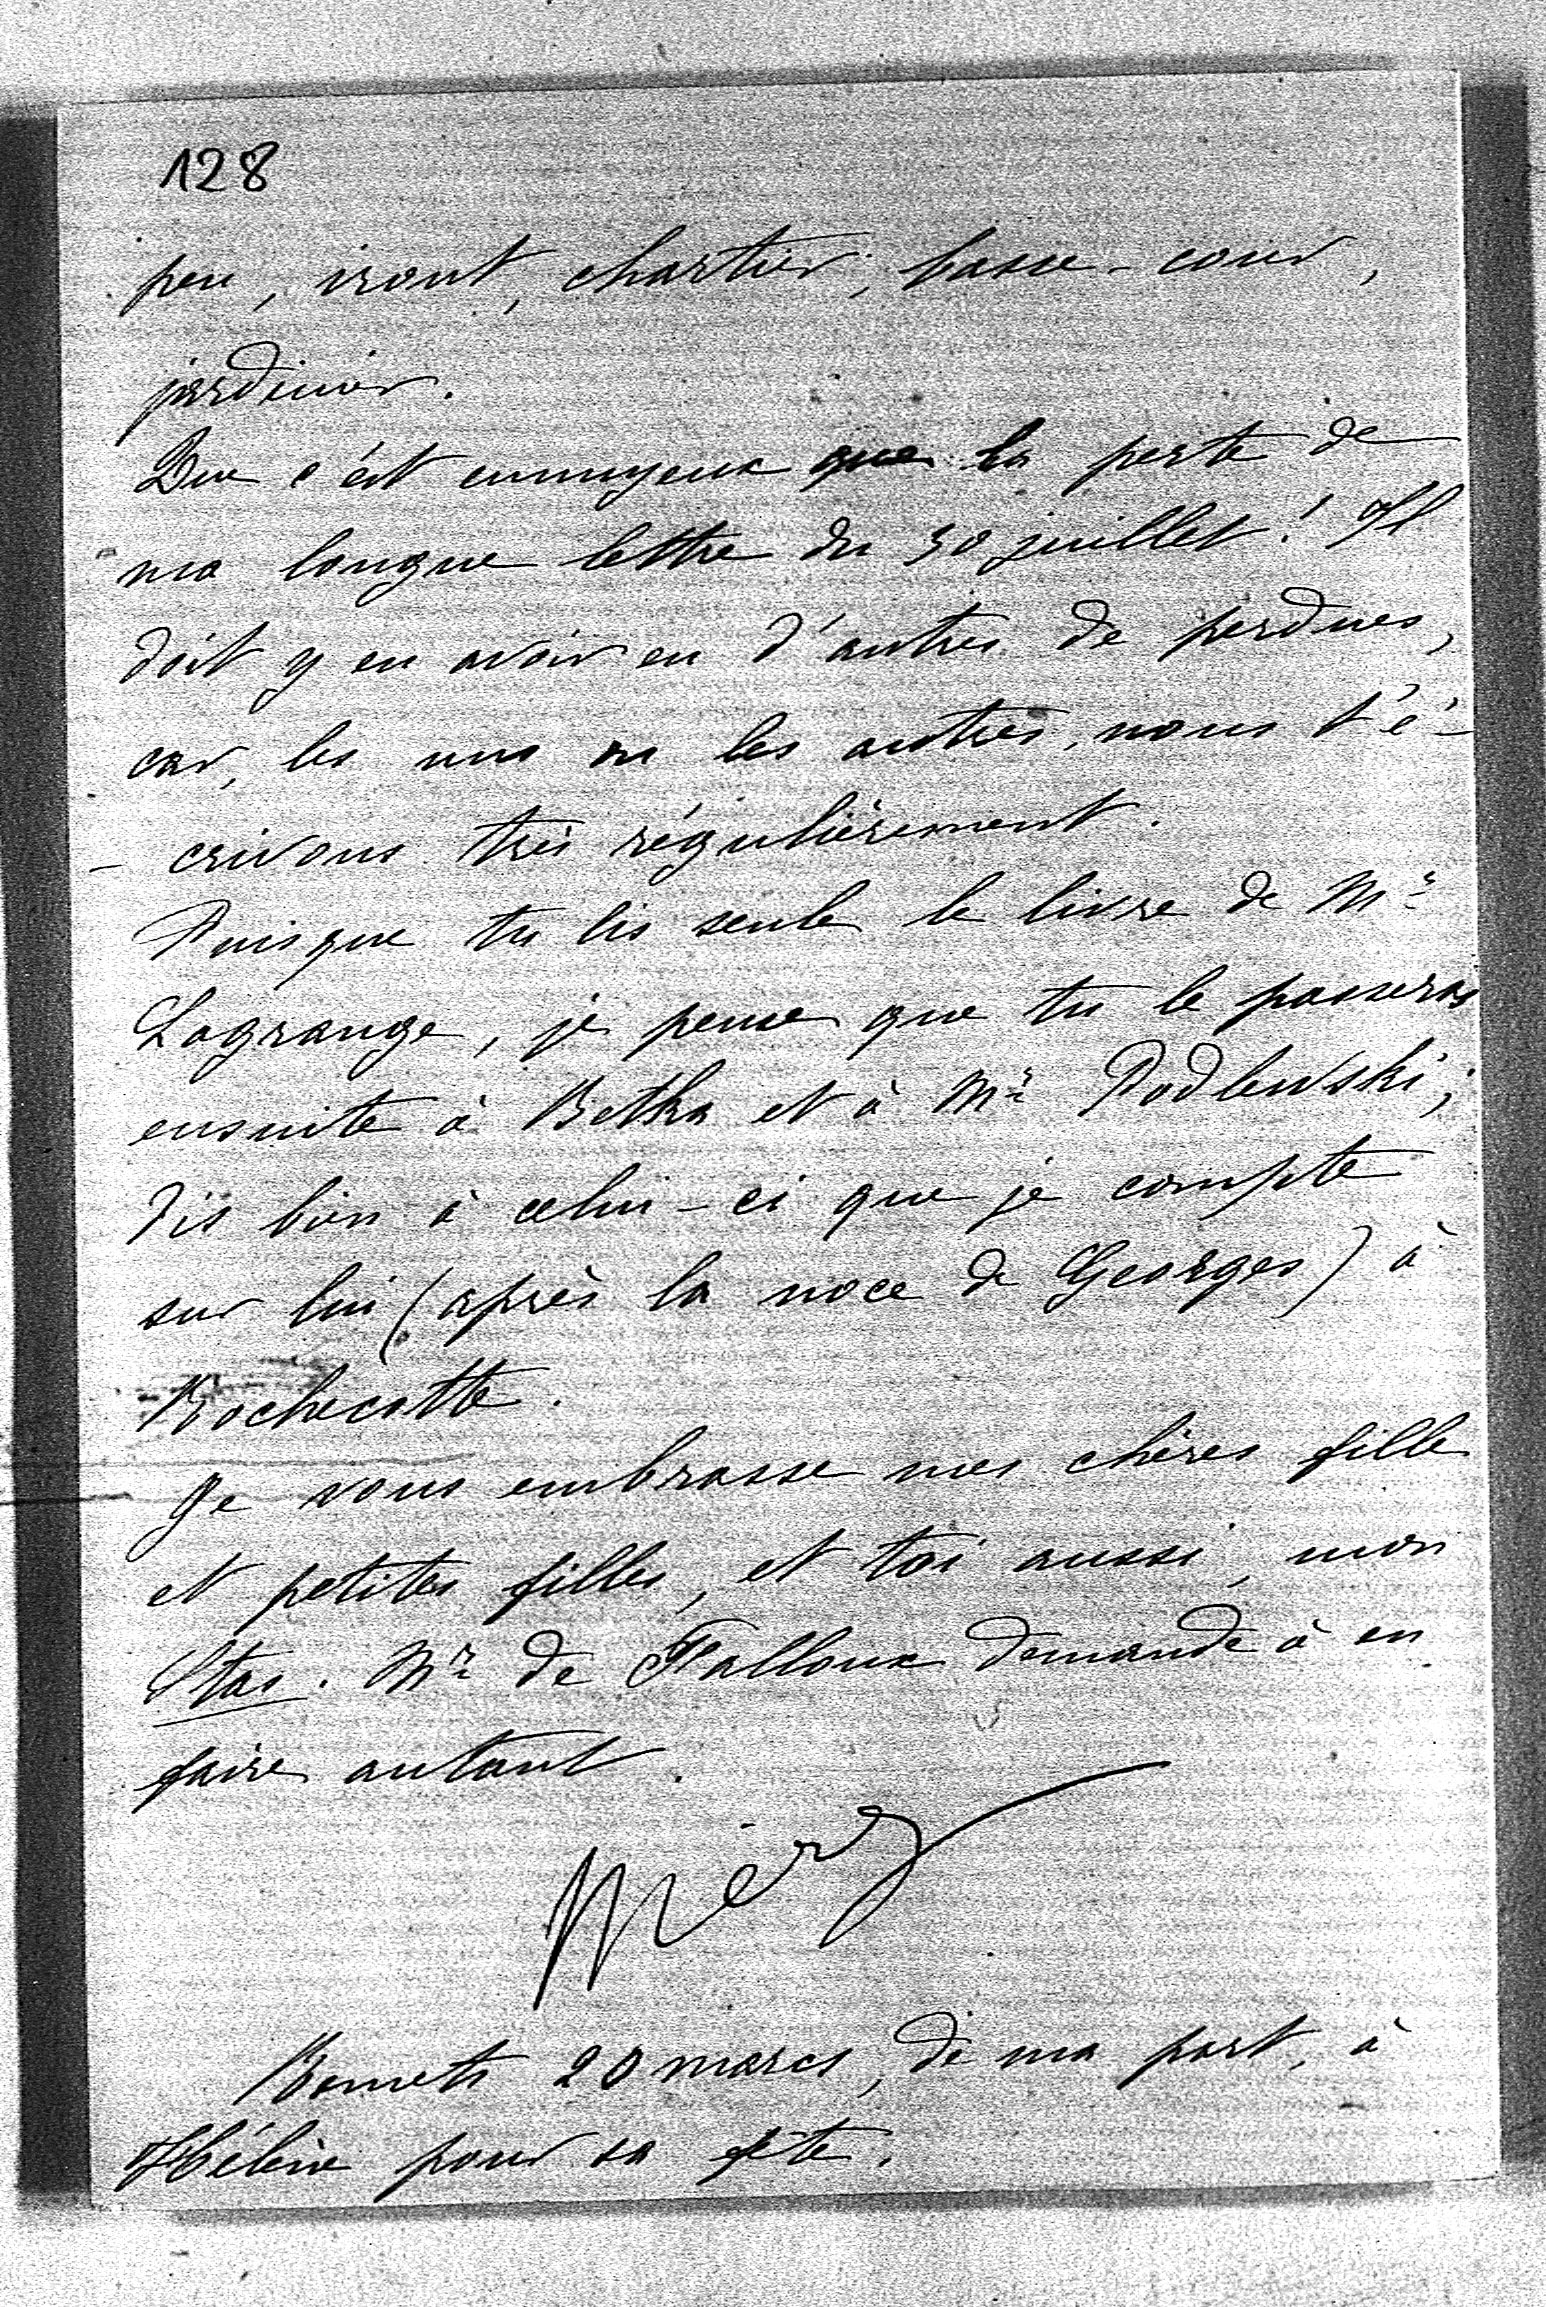 128
peu, iront, chartier, basse-cour,
jardinier.
Que c'est ennuyeux que la perte de
ma longue lettre du 30 juillet! Il
doit y en avoir eu d'autres de perdues,
car, les uns ou les autres, nous t'é-
- crivons très régulièrement.
Puisque tu lis seule le livre de Mr
Lagrange, je pense que tu le passeras
ensuite à Betka et à Mr Podlewski;
dis bien à celui-ci que je compte
sur lui (après la noce de Georges) à
Rochecotte.
Je vous embrasse mes chères fille
et petites filles, et toi aussi, mon
Stas. Mr de Falloux demande à en
faire autant.
Mère
Remets 20 marcs, de ma part, à
Hélène pour sa fête.